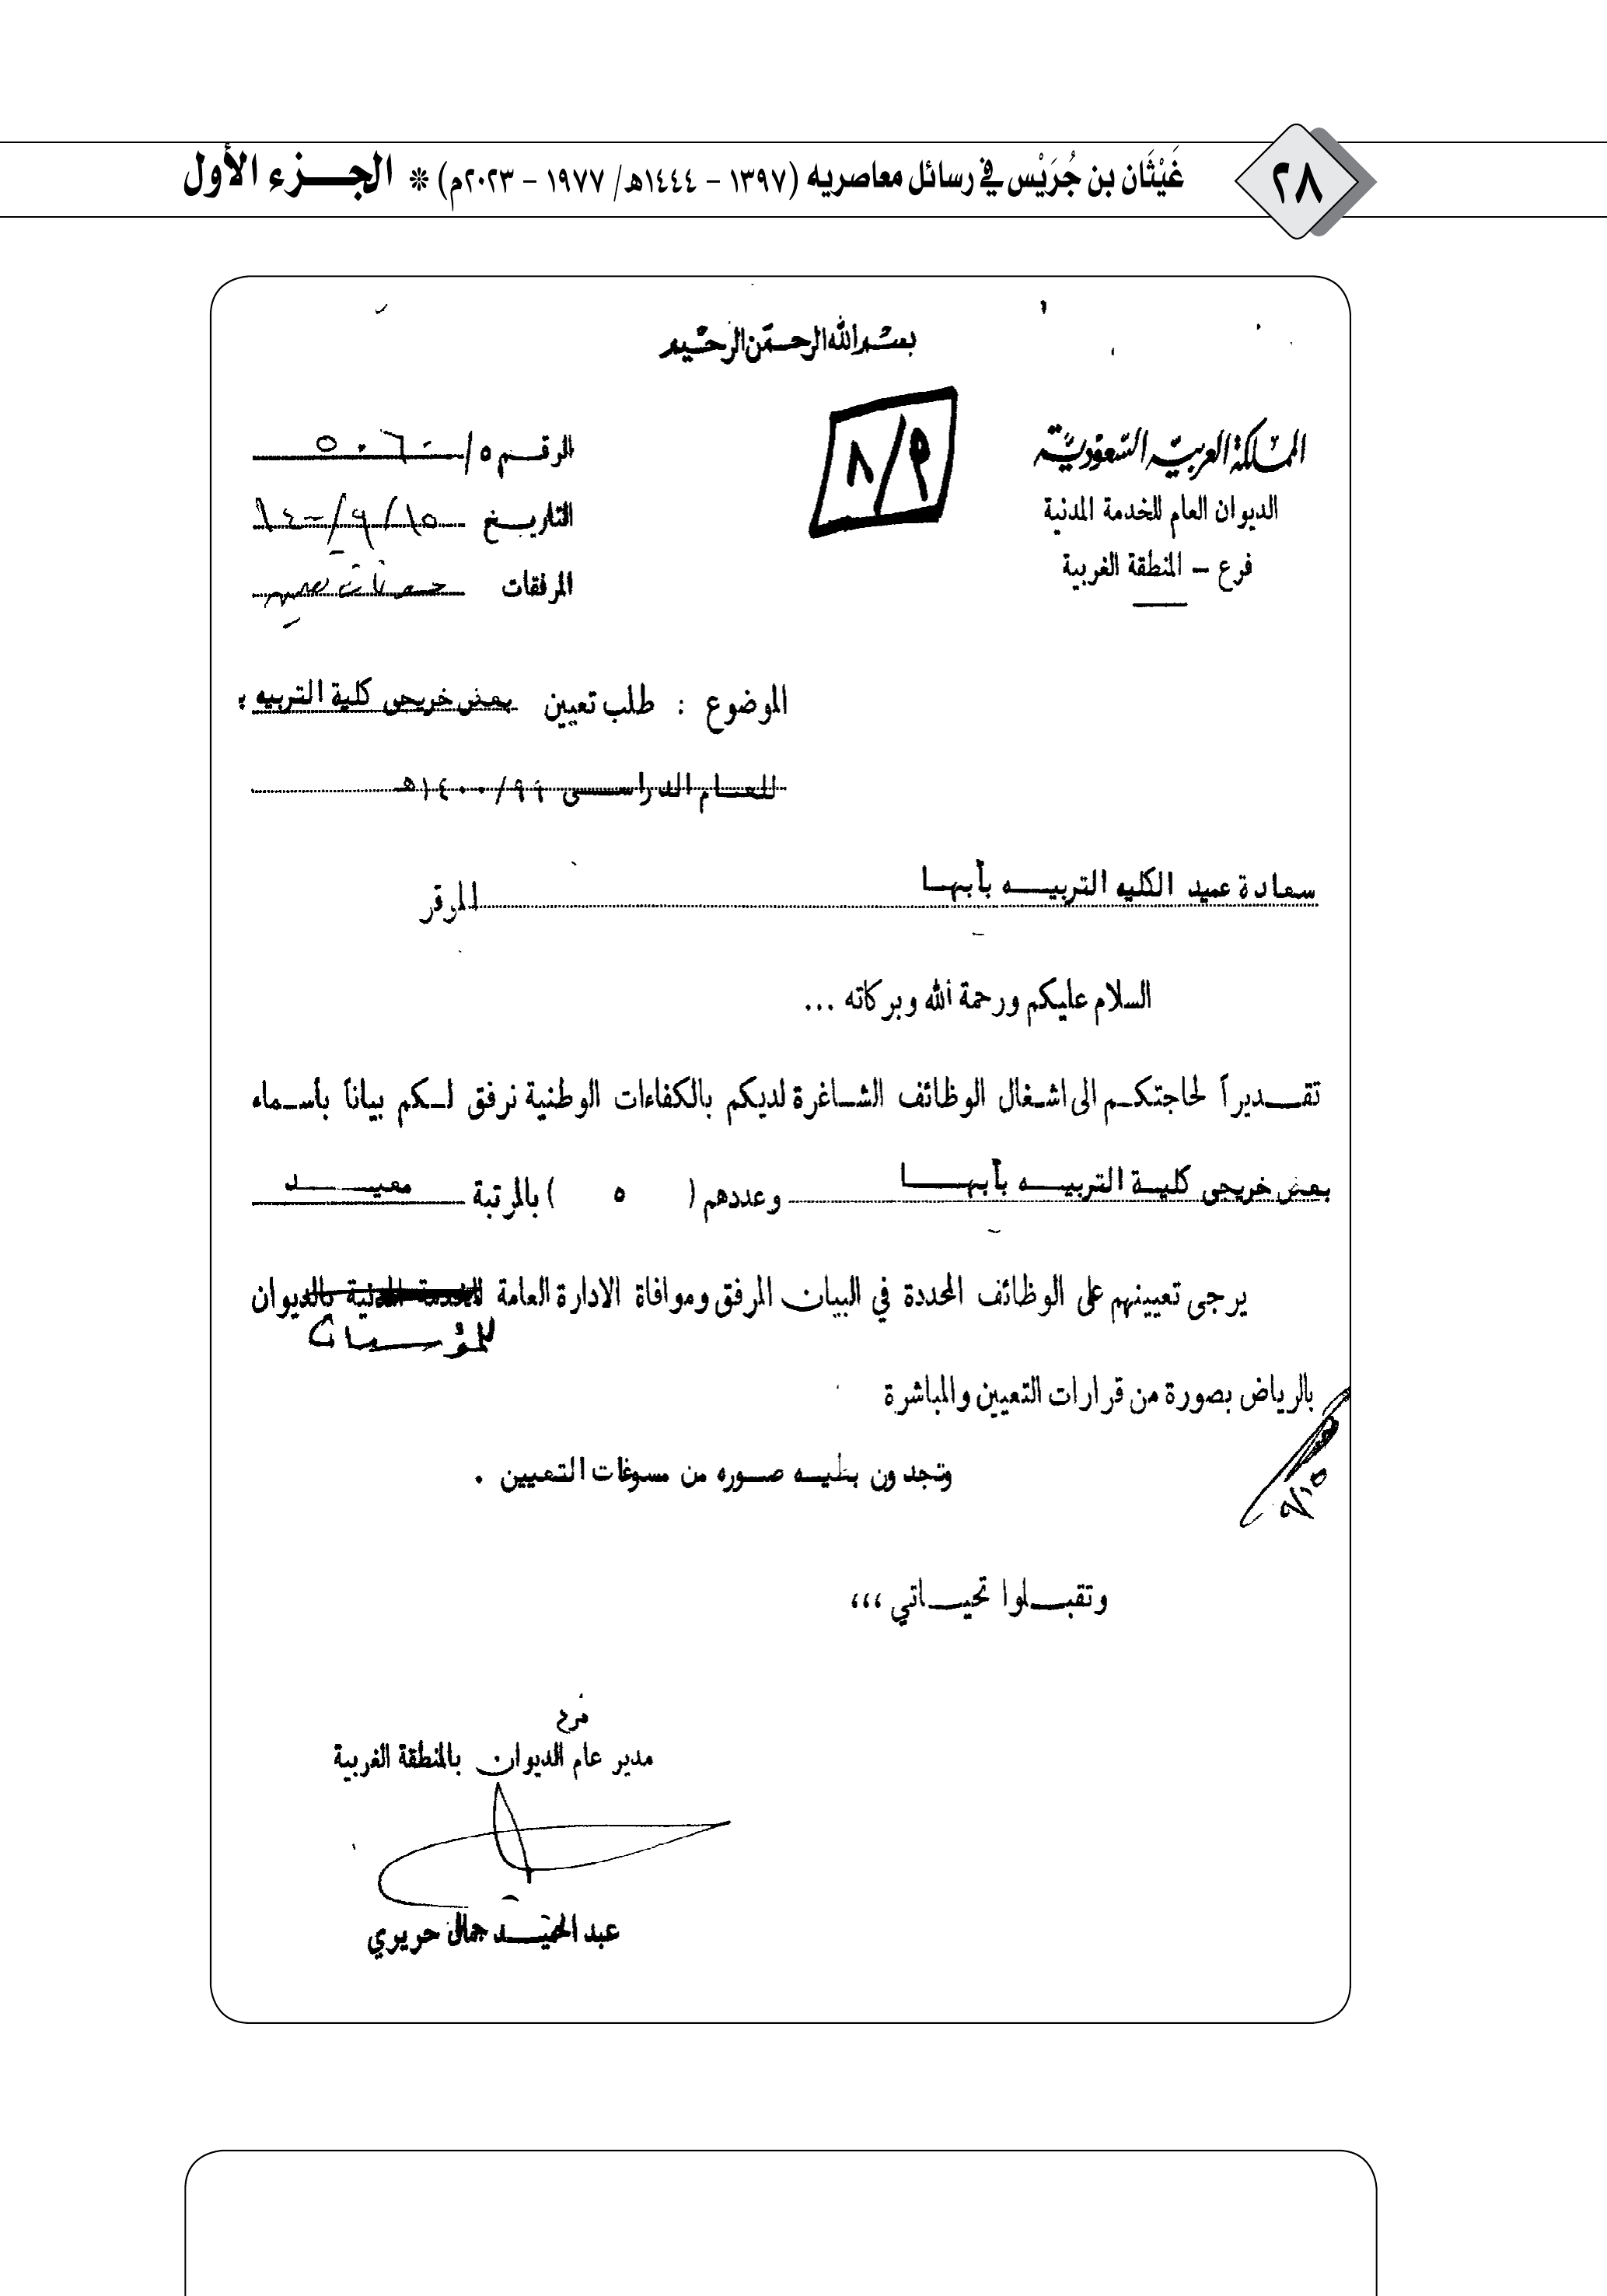 ٢٨
غَيْثَان بن جُرَيْس في رسائل معاصريه (١٣٩٧ – ١٤٤٤هـ/ ١٩٧٧ – ٢٠٢٣م) * الجـــزء الأول
بسم الله الرحمن الرحيم
المملكة العربية السعودية
الديوان العام للخدمة المدنية
فرع – المنطقة الغربية
٨/٩
الرقم ٥/
التاريخ ١٥/٩/١٤٠٠
المرفقات
الموضوع : طلب تعيين بعض خريجى كلية التربيه ب
للعام الدراسى ٩٩/١٤٠٠هـ
سعادة عميد الكليه التربيه بأبها الموقر
السلام عليكم ورحمة الله وبركاته ...
تقديراً لحاجتكم الى اشغال الوظائف الشاغرة لديكم بالكفاءات الوطنية نرفق لكم بياناً بأسماء
بعض خريجى كلية التربيه بأبها وعددهم ( ٥ ) بالمرتبة معيد
يرجى تعيينهم على الوظائف المحددة في البيان المرفق وموافاة الادارة العامة للخدمة المدنية بالديوان
للمؤسسات
بالرياض بصورة من قرارات التعيين والمباشرة
وتجدون بطيه صوره من مسوغات التعيين .
٩/١٥
وتقبلوا تحياتي ،،،
فرع
مدير عام الديوان بالمنطقة الغربية
عبد الحميد جمال حريري